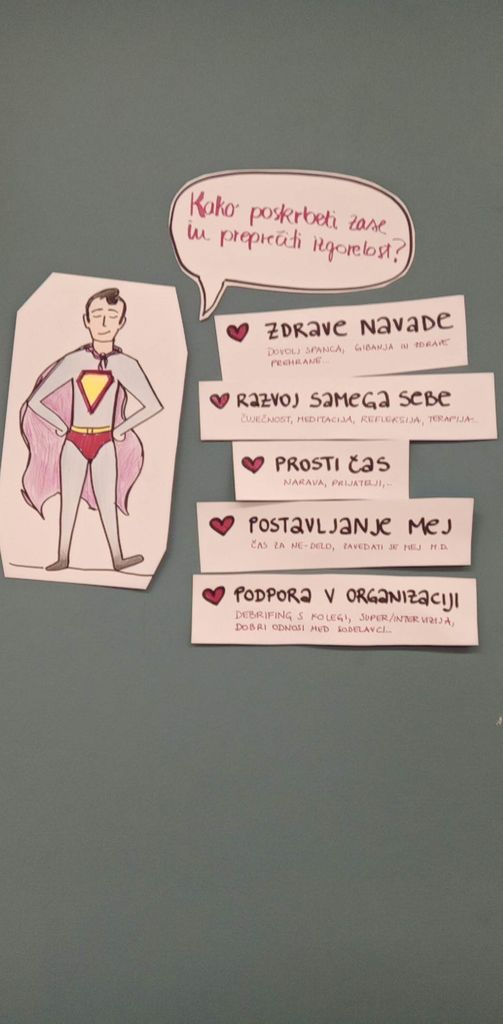 Kako poskrbeti zase
in preprečiti izgorelost?
ZDRAVE NAVADE
DOVOLJ SPANCA, GIBANJA IN ZDRAVE
PREHRANE...
RAZVOJ SAMEGA SEBE
ČUJEČNOST, MEDITACIJA, REFLEKSIJA, TERAPIJA...
PROSTI ČAS
NARAVA, PRIJATELJI,...
POSTAVLJANJE MEJ
ČAS ZA NE-DELO, ZAVEDATI SE MEJ M.D.
PODPORA V ORGANIZACIJI
DEBRIFING S KOLEGI, SUPER/INTERVIZIJA,
DOBRI ODNOSI MED SODELAVCI...